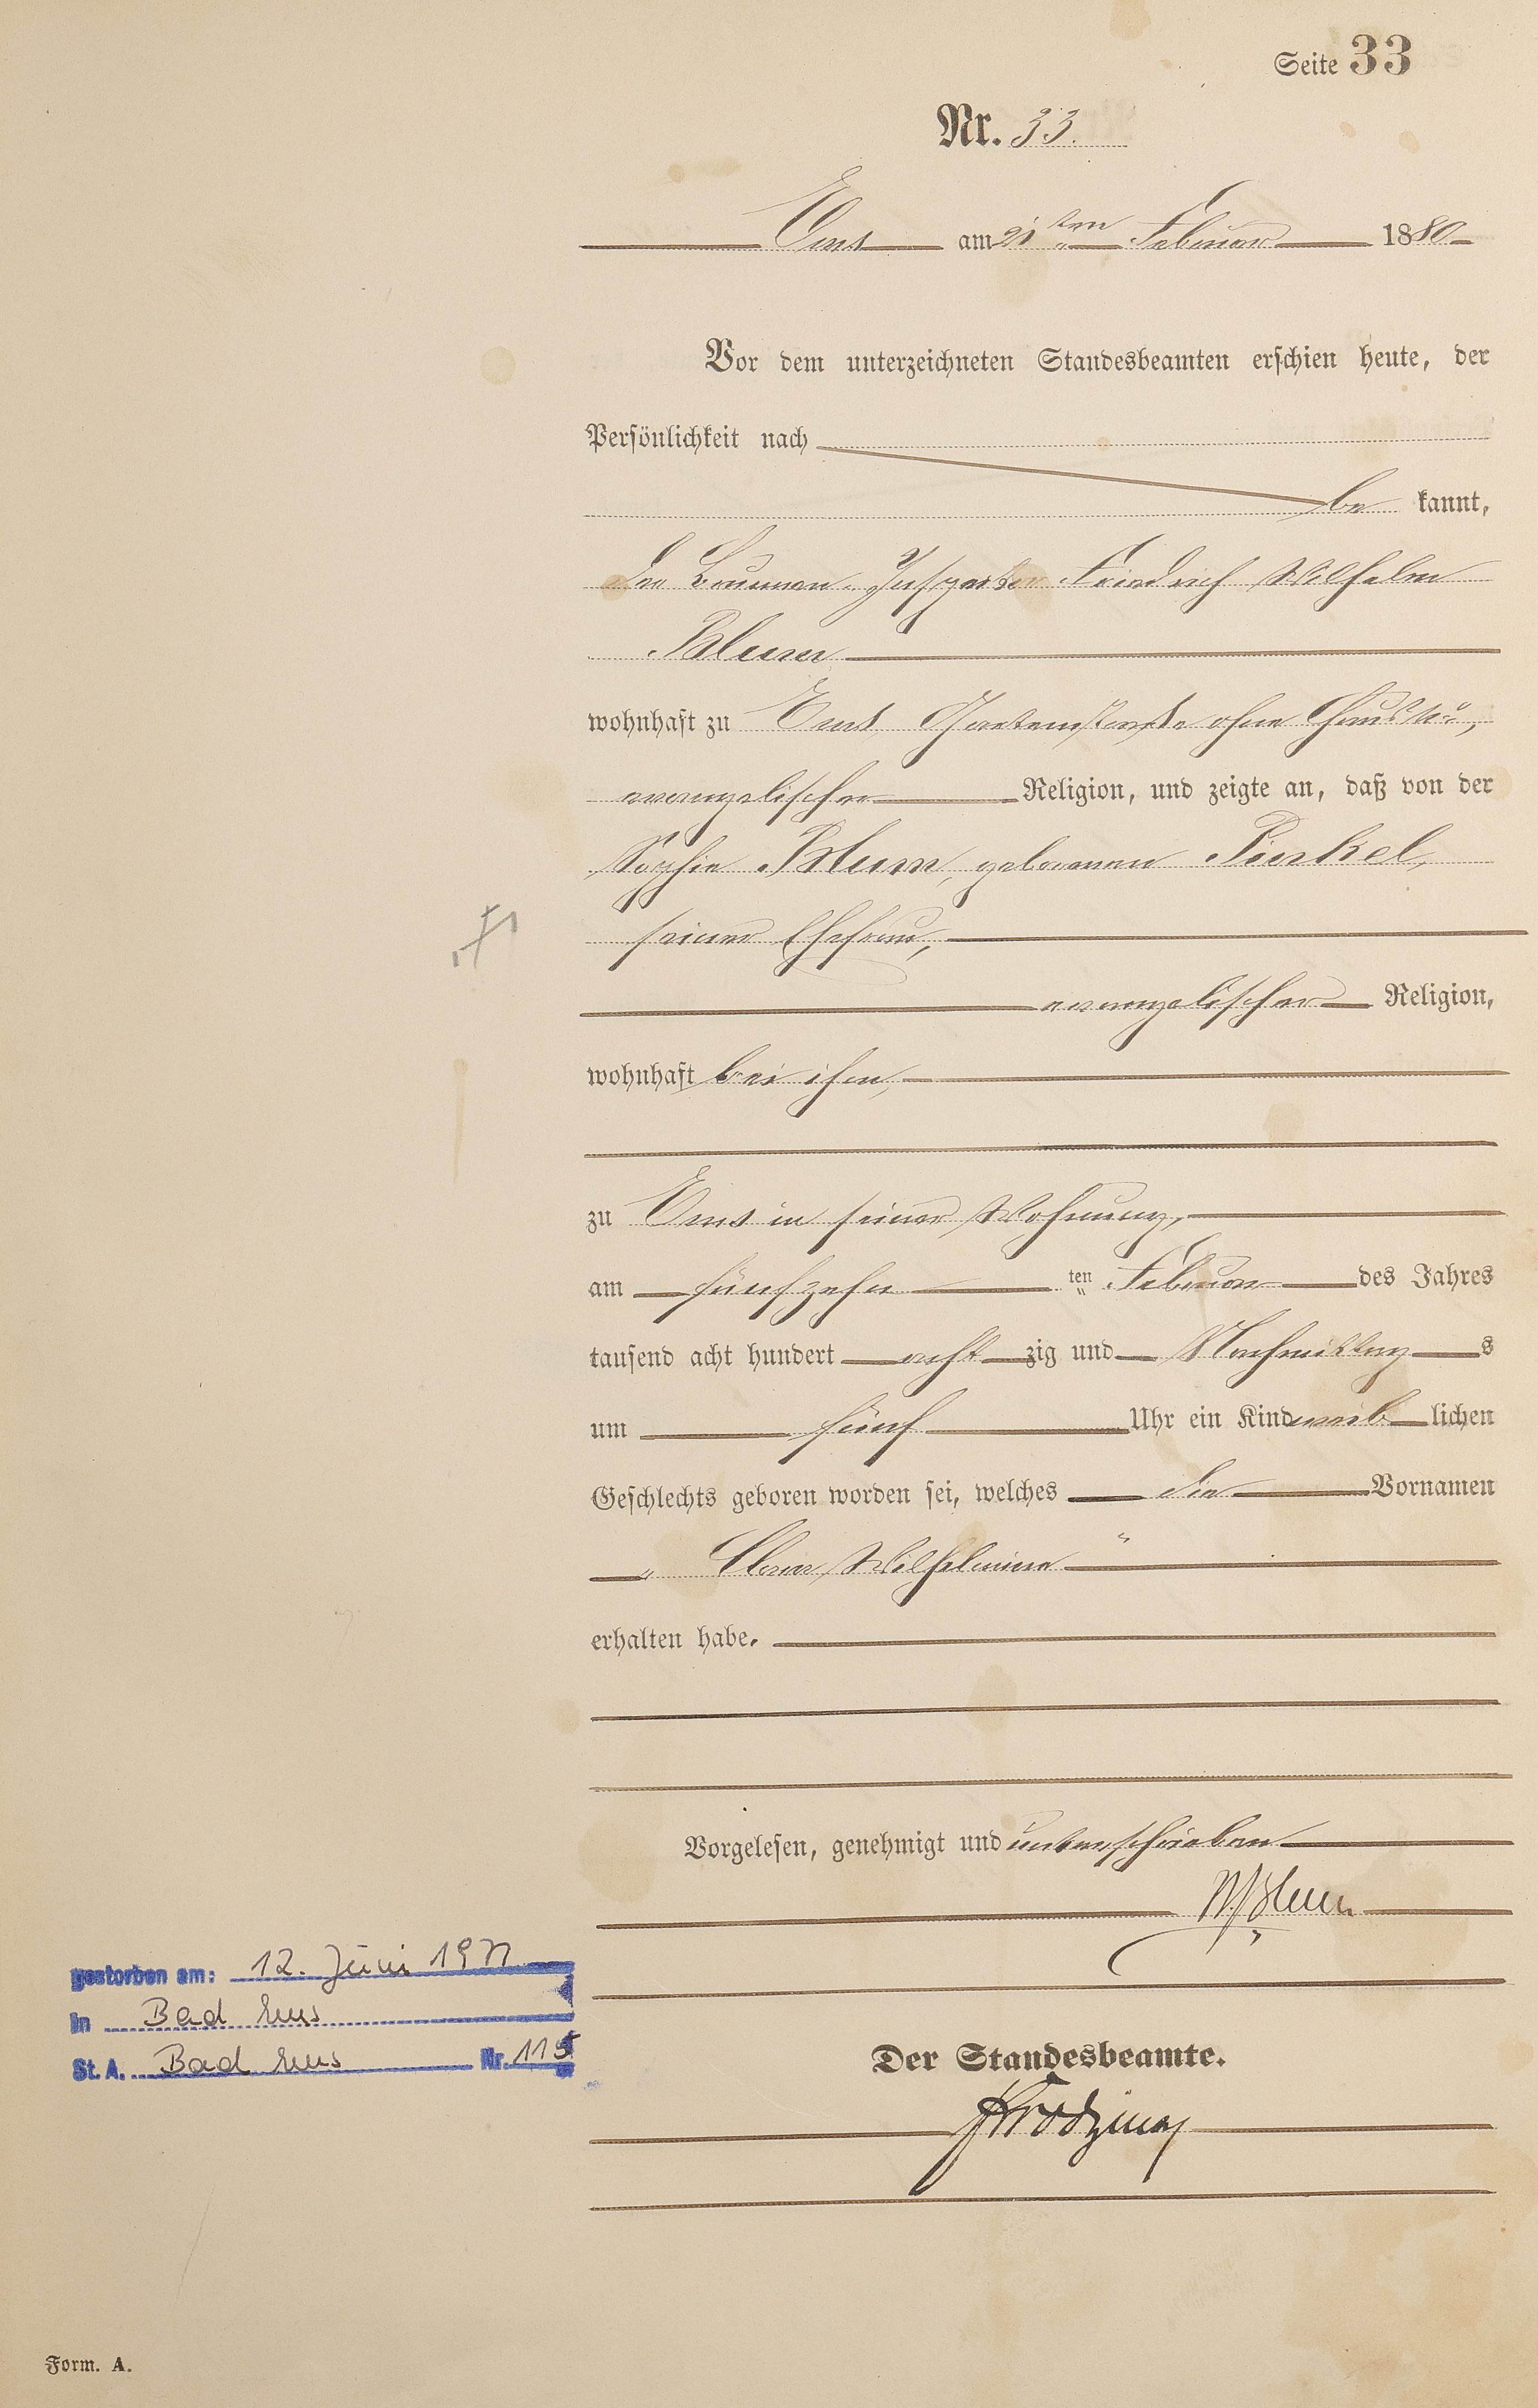 Seite 33
Nr. 33.
Ems am 21ten Februar 1880
Vor dem unterzeichneten Standesbeamten erschien heute, der
Persönlichkeit nach
be kannt,
der Brunnen-Inspector Friedrich Wilhelm
Blum
wohnhaft zu Ems, Gartenstraße ohne Haus No,
evangelischer Religion, und zeigte an, daß von der
Sophie Blum, geborenen Pinkel,
seiner Ehefrau,
evangelischer Religion,
wohnhaft bei ihm,
zu Ems in seiner Wohnung,
am fünfzehn ten Februar des Jahres
tausend acht hundert acht zig und Nachmittag s
um fünf Uhr ein Kind weib lichen
Geschlechts geboren worden sei, welches die Vornamen
„ Clara Wilhelmine “
erhalten habe.
Vorgelesen, genehmigt und unterschrieben
W. Blum
gestorben am: 12. Juni 1971
in Bad Ems
St. A. Bad Ems Nr. 115
Der Standesbeamte.
Form. A.